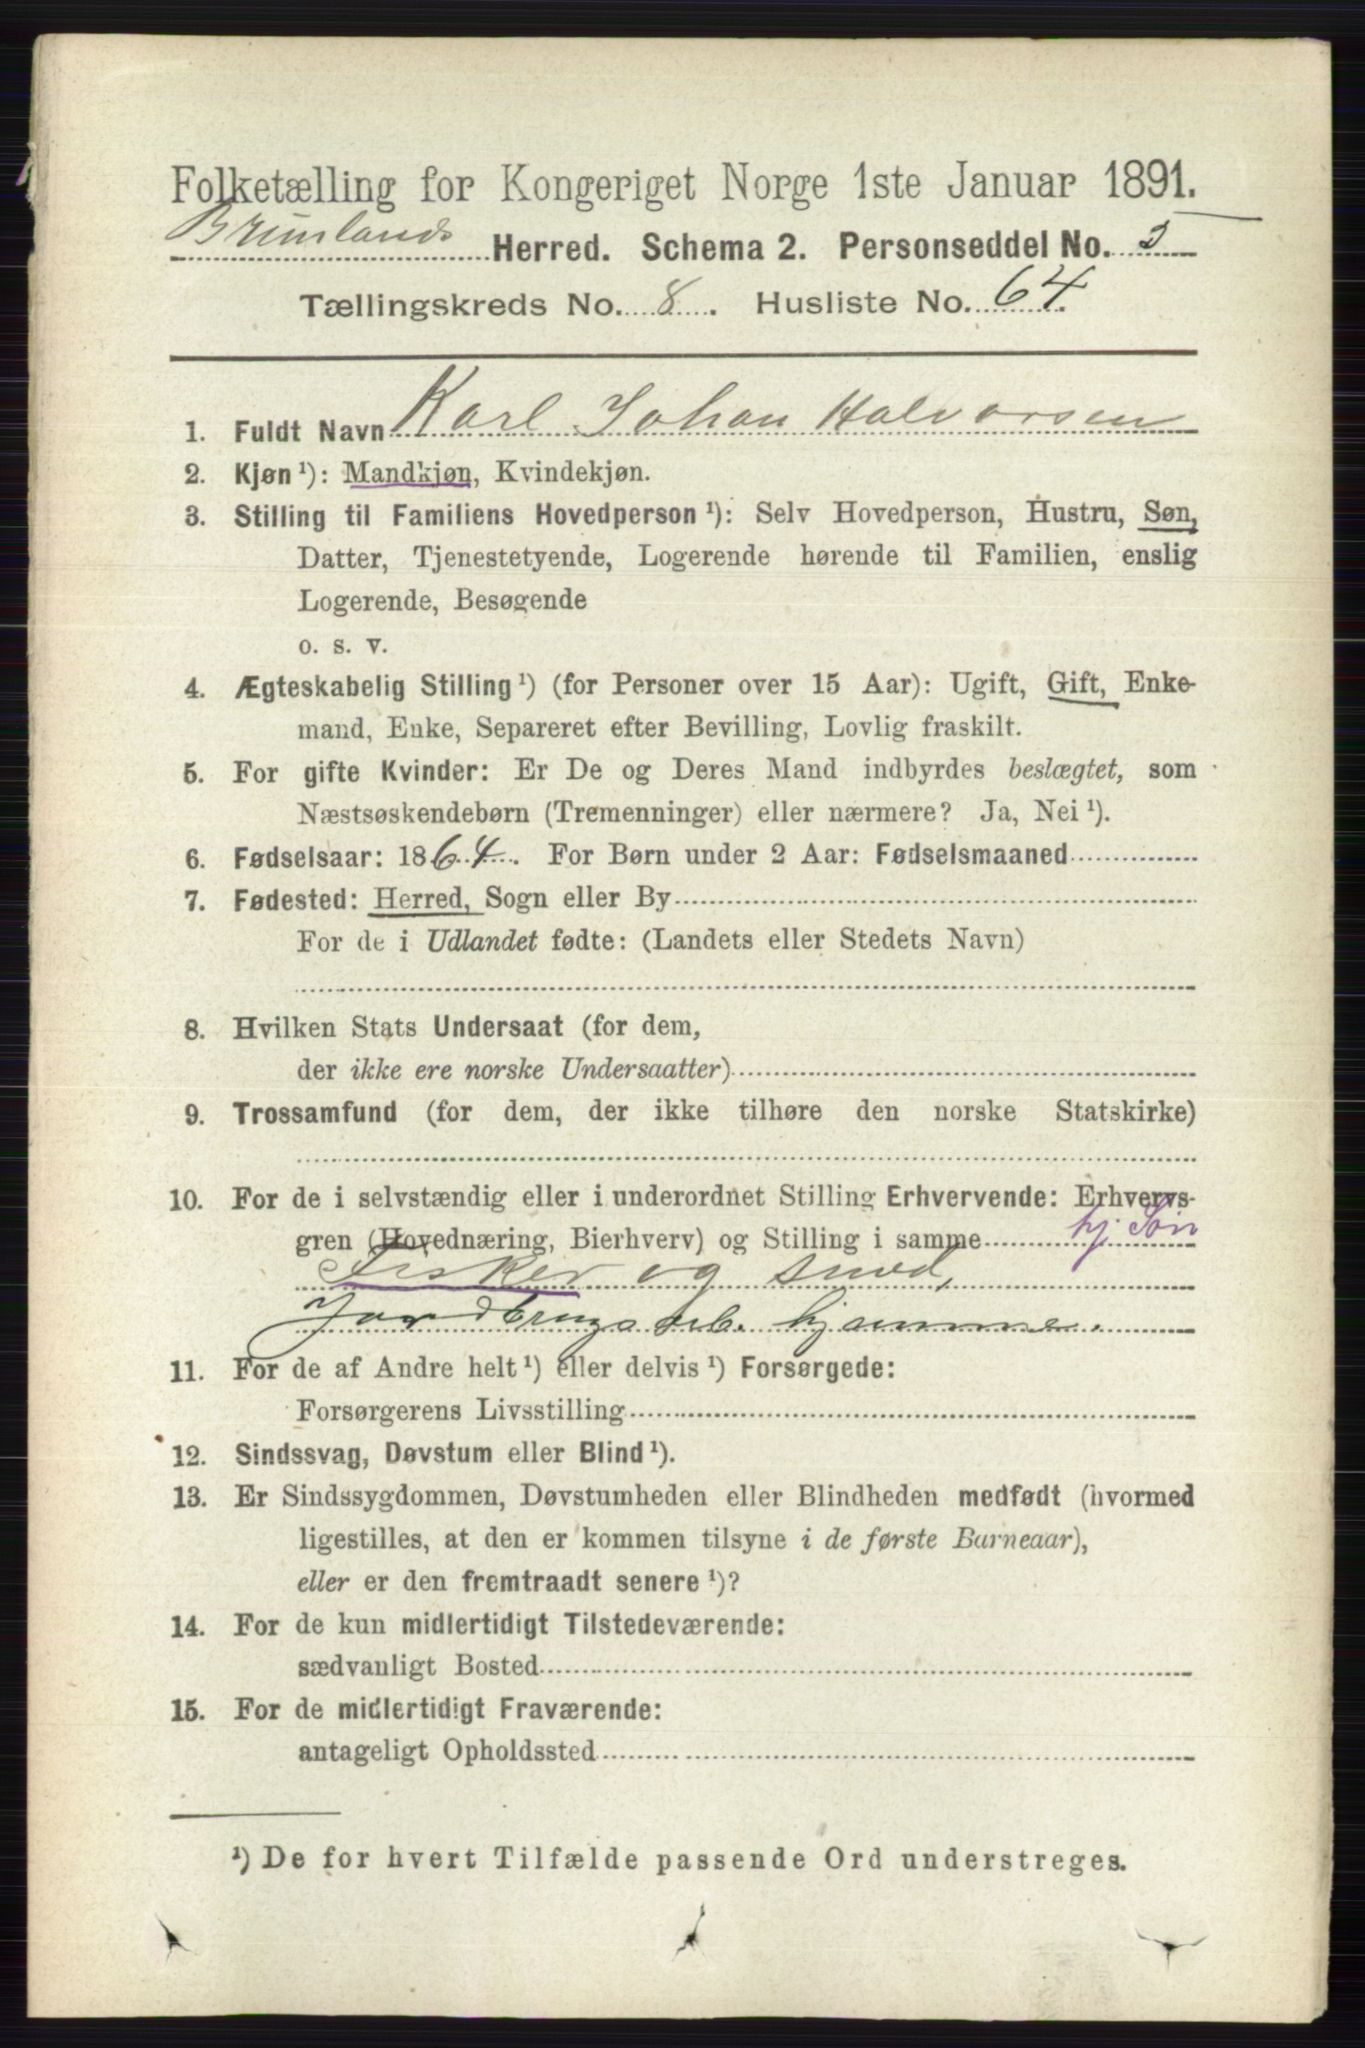 Folketælling for Kongeriget Norge 1ste Januar 1891.
Brunlands Herred. Schema 2. Personseddel No. 5
Tællingskreds No. 8. Husliste No. 64.
1. Fuldt Navn Karl Johan Halvorsen
2. Kjøn ¹): Mandkjøn, Kvindekjøn.
3. Stilling til Familiens Hovedperson ¹): Selv Hovedperson, Hustru, Søn,
Datter, Tjenestetyende, Logerende hørende til Familien, enslig
Logerende, Besøgende
o. s. v.
4. Ægteskabelig Stilling ¹) (for Personer over 15 Aar): Ugift, Gift, Enke-
mand, Enke, Separeret efter Bevilling, Lovlig fraskilt.
5. For gifte Kvinder: Er De og Deres Mand indbyrdes beslægtet, som
Næstsøskendebørn (Tremenninger) eller nærmere? Ja, Nei ¹).
6. Fødselsaar: 1864. For Børn under 2 Aar: Fødselsmaaned
7. Fødested: Herred, Sogn eller By
For de i Udlandet fødte: (Landets eller Stedets Navn)
8. Hvilken Stats Undersaat (for dem,
der ikke ere norske Undersaatter)
9. Trossamfund (for dem, der ikke tilhøre den norske Statskirke)
10. For de i selvstændig eller i underordnet Stilling Erhvervende: Erhvervs-
gren (Hovednæring, Bierhverv) og Stilling i samme hj. Søn
Fisker og smed,
Jordbrugsarb. hjemme.
11. For de af Andre helt ¹) eller delvis ¹) Forsørgede:
Forsørgerens Livsstilling
12. Sindssvag, Døvstum eller Blind ¹).
13. Er Sindssygdommen, Døvstumheden eller Blindheden medfødt (hvormed
ligestilles, at den er kommen tilsyne i de første Barneaar),
eller er den fremtraadt senere ¹)?
14. For de kun midlertidigt Tilstedeværende:
sædvanligt Bosted
15. For de midlertidigt Fraværende:
antageligt Opholdssted
¹) De for hvert Tilfælde passende Ord understreges.